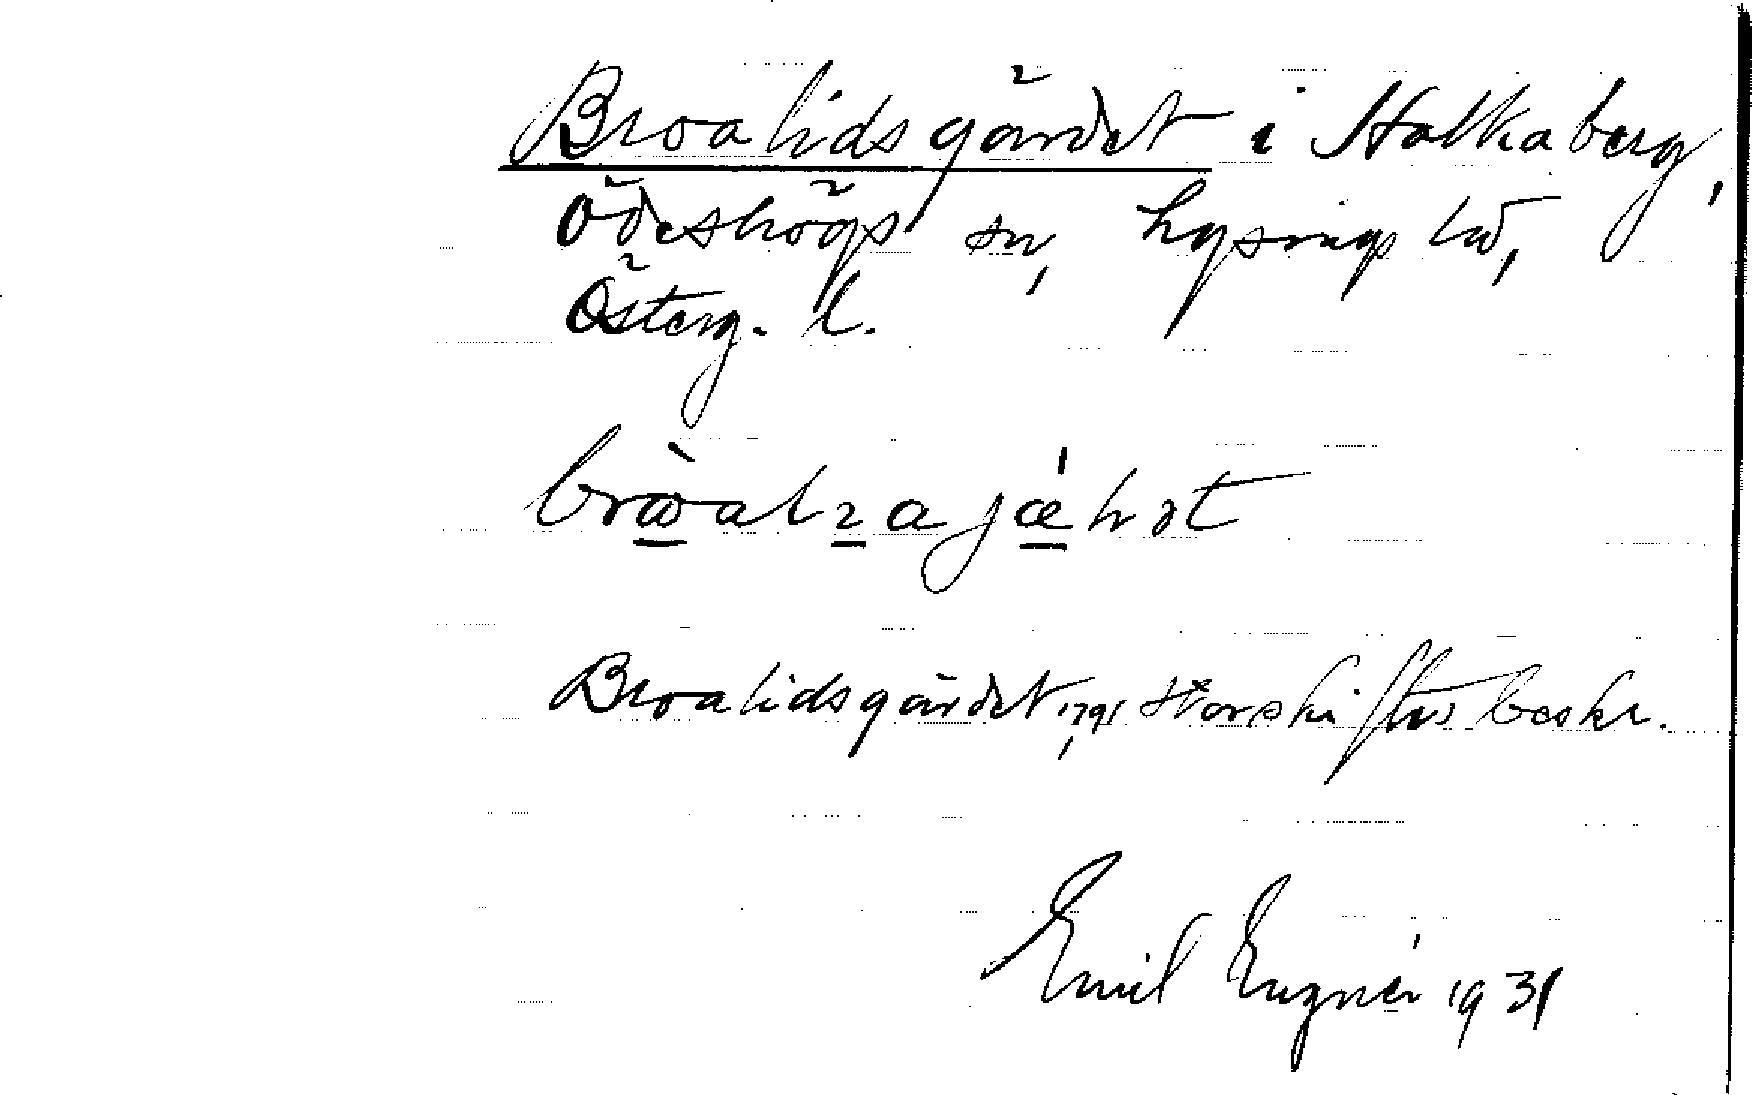 Broalidsgärdet i Holkaberg,
Ödeshögs sn, Lysings hd,
Österg. l.
Broalidsgärdet, 1791 Storskiftesbeskr.
Emil Engnér 1931